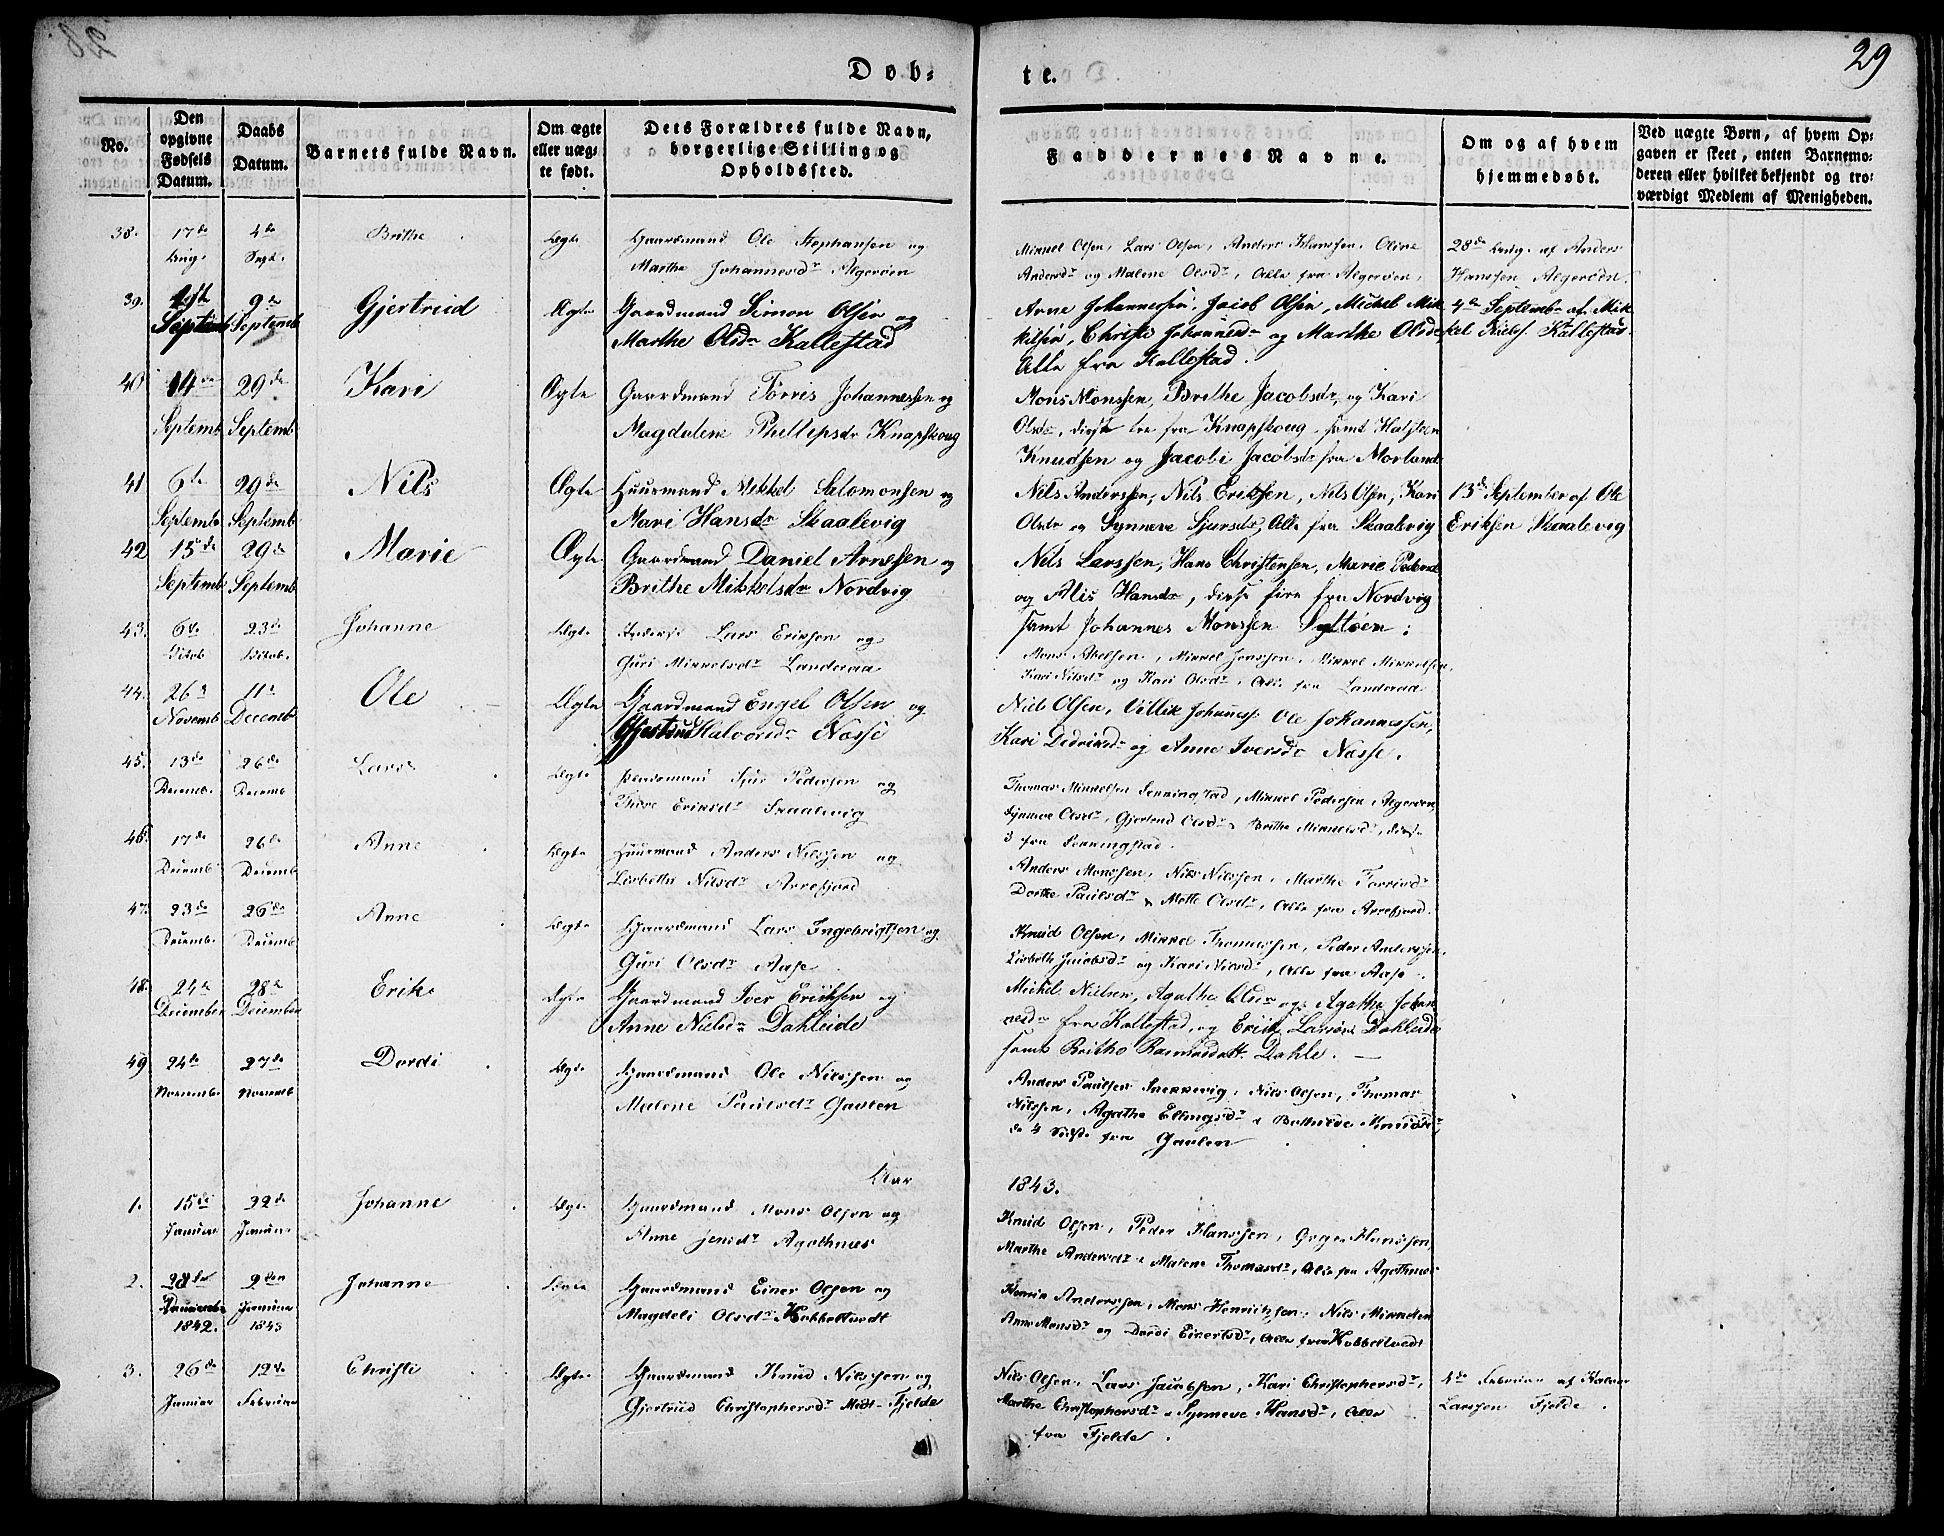 29
Døb-
te.
No.
Den opgivne Fødsels Datum.
Daabs Datum.
Barnets fulde Navn.
Om ægte eller uægte født.
Dets Forældres fulde Navn, borgerlige Stilling og Opholdssted.
Faddernes Navne.
Om og af hvem hjemmedøbt.
Ved uægte Børn, af hvem Opgaven er skeet, enten Barnemoderen eller hvilket bekjendt og troværdigt Medlem af Menigheden.
38. 17de 4de Brithe Ægte Gaardmand Ole Stephansen og
Aug. Sept. Marthe Johannesdr Algerøen
Mikkel Olsen, Lars Olsen, Anders Hanssen, Oline
Andersdr og Malene Olsdr, Alle fra Algerøen,
28de Aug. af Anders
Hanssen Algerøen.
39. 9de Gjertrud Ægte Gaardmand Simon Olsen og
Septemb Septemb Marthe Olsdr Kallestad
Arne Johannessen, Jacob Olsen, Michel Mik-
kelsen, Christi Johannesdr og Marthe Olsdr
Alle fra Kallestad.
4de Septembr af Mik-
kel Nielss. Kallestad.
40 14de 29de Kari Ægte Gaardmand Tørris Johannessen og
Septemb Septemb Magdalene Phillipsdr Knapskoug
Mons Monssen, Brithe Jacobsdr, og Kari
Olsdr, disse tre fra Knapskoug samt Halsteen
Knudsen og Jacobi Jacobsdr fra Morland
41 6te 29de Nils Ægte Huusmand Mikkel Salomonsen og
Septemb Septemb Mari Hansdr Skaalevig
Nils Anderssen, Nils Eriksen, Nils Olsen, Kari
Olsdr og Synneve Sjursdr, Alle fra Skaalevig
13de September af Ole
Eriksen Skaalevig
42 15de 29de Marie Ægte Gaardmand Daniel Arnessen og
Septemb Septemb Brithe Mikkelsdr Nordvig
Nils Larssen, Hans Christensen, Marie Pedersdr
og Alis Hansdr, disse fire fra Nordvig
samt Johannes Monssen Syltøen.
43. 6te 23de Johanne Ægte Lars Eriksen og
Octob Octob. Guri Mikkelsdr Landeraa
Mons Mikkel Jenssen, Mikkel Mikkelsen,
Kari Nilsdr og Kari Olsdr, Alle fra Landeraa
44. 26de 11te Ole Ægte Gaardmand Engel Olsen og
Novemb Decemb Gjertrud Halvorsdr Næsse
Niels Olsen, Villik Johaness. Ole Johannessen,
Kari Dedriksdr og Anne Iversdr Næsse.
45. 13de 26de Lars Ægte Sjur Pedersen og
Decemb. Decemb Eriksdr Skaalevig
Thomas Mikkelsen Senningstad, Mikkel Pedersen Algerøen,
Synneve Olsdr, Gjertrud Olsdr & Brithe Mikkelsdr, disse
3 fra Senningstad.
46. 17de 26de Anne Ægte Huusmand Anders Nilssen og
Decemb Decemb Lisbeth Nilsdr Arrefjord
Anders Monssen, Nils Nilssen, Marthe Torrisdr
Dorthe Paulsdr & Mette Olsdr, Alle fra Arrefjord.
47. 23de 26de Anne Ægte Gaardmand Lars Ingebrigtsen og
Decemb. Decemb Guri Olsdr Aase
Knud Olsen, Mikkel Thomassen, Peder Anderssen,
Lisbeth Jacobsdr og Kari Nilsdr, Alle fra Aase.
48. 24de 28de Erik. Ægte Gaardmand Iver Eriksen og
December December Anne Nielsdr Dahleide
Michel Nielsen, Agathe Olsdr og Agatha Johan-
nesdr fra Kallestad, og Erik Larsen Dahleide
samt Brithe Rasmusdatt. Dahle.
49 24de 27de Dordi Ægte Gaardmand Ole Nilssen og
Novemb Novemb Malene Paulsdr Gavlen
Anders Paulsen Snekkevig, Nils Olsen, Thomas
Nilssen, Agathe Ellingsdr & Bothilde Knudsdr,
de 4 sidste fra Gavlen
Aar 1843.
1. 15de 22de Johanne Ægte Gaardmand Mons Olsen og
Januar Januar Anne Jensdr Agothnes
Knud Olsen, Peder Hanssen, Hanssen,
Marthe Andersdr & Malene Thomasdr, Alle fra Agothnes
2. 28de 2den Johanne Ægte Gaardmand Einer Olsen og
Decembr Januar Magdeli Olsdr Kobbeltvedt
1842. 1843
Henrik Anderssen, Mons Henrikssen, Nils Mikkelsen
Anne Monsdr og Dordi Einertsdr, Alle fra Kobbeltvedt
3. 26de 12te Christi Ægte Gaardmand Knud Nilssen og
Januar Februar Gjertrud Christophersdr Midt-Fjelde
Nils Olsen, Lars Jacobsen, Kari Christophersdr,
Marthe Christophersdr & Synneve Hansdr, Alle
fra Fjelde.
4de Februar af
Larssen Fjelde.